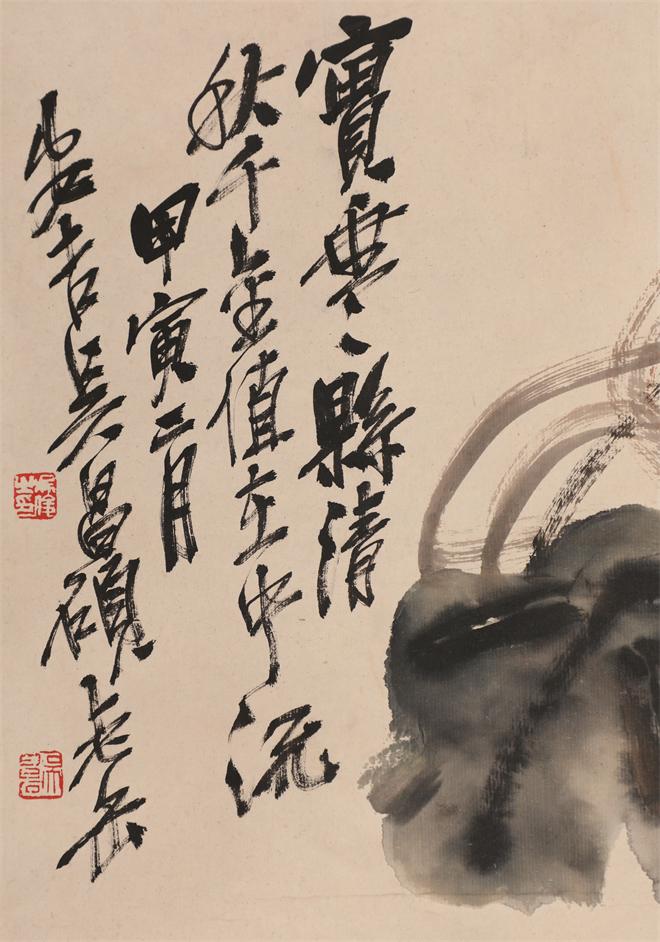 實垂〻縣清
秋千金值在中流
甲寅二月
安吉吳昌碩老缶